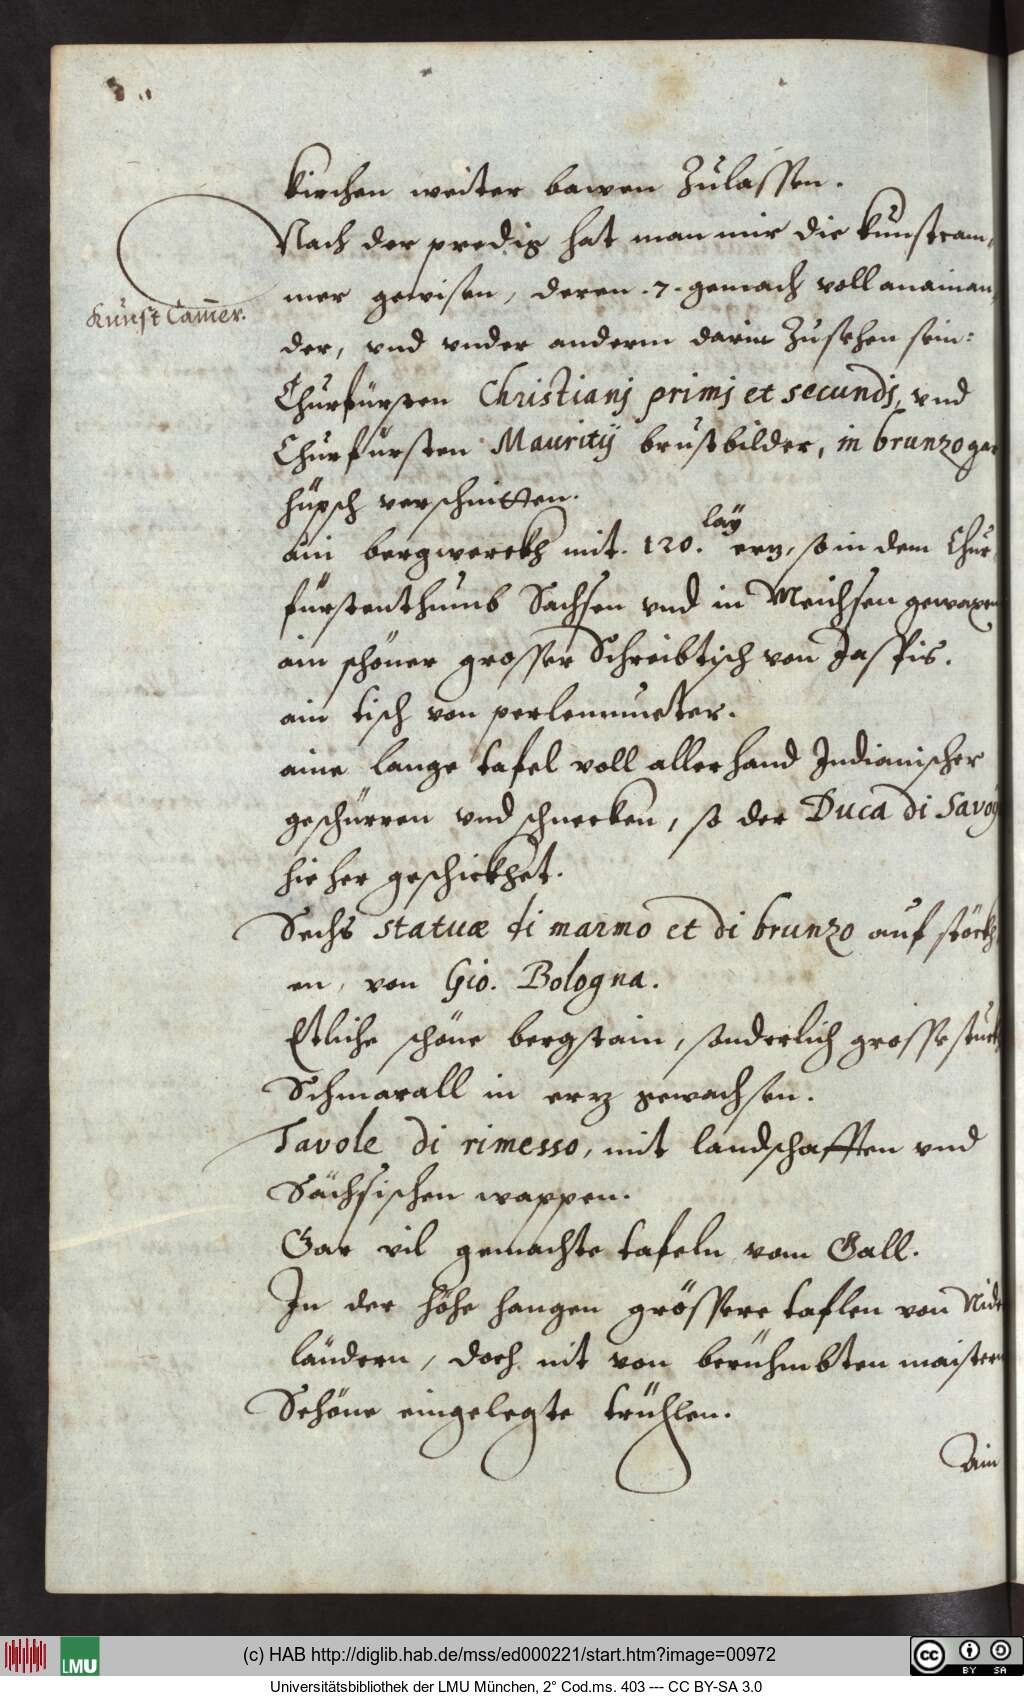 kirchen weiter bawen Zulassen.
Nach der predig hat man mir die kunstcam,
Kunst Cam̄er.
mer gewisen, deren .7. gemach voll anainan,
der, vnd vnder anderm darin Zusehen sein:
Churfürsten Christianj primj et secundj, vnd
Churfürsten Mauritij brustbilder, in brunzo gar
hüpsch verschnitten.
ain bergwerckh mit. 120. erz, so in dem Chur
laÿ
fürstenthumb Sachsen vnd in Meichsen gewaxen
ain schöner grosser Schreibtisch von Jaspis.
ain tisch von perlenmueter.
aine lange tafel voll allerhand Indianischer
geschürren vnd schnecken, so der Duca di Savoÿ
hieher geschickhet.
Sechs statuæ di marmo et di brunzo auf stöckh
en, von Gio. Bologna.
Etliche schöne bergstain, sonderlich grosse stuckh
Schmarall in erz gewachsen.
Tavole di rimesso, mit landschafften vnd
Sächsischen wappen.
Gar vil gemachte tafeln vom Gall.
In der höhe hangen grössere taflen von Nider
ländern, doch nit von berühmbten maistern
Schöne eingelegte trühlen.
Ain
(c) HAB http://diglib.hab.de/mss/ed000221/start.htm?image=00972
LMU
cc BY SA
Universitätsbibliothek der LMU München, 2° Cod.ms. 403 --- CC BY-SA 3.0